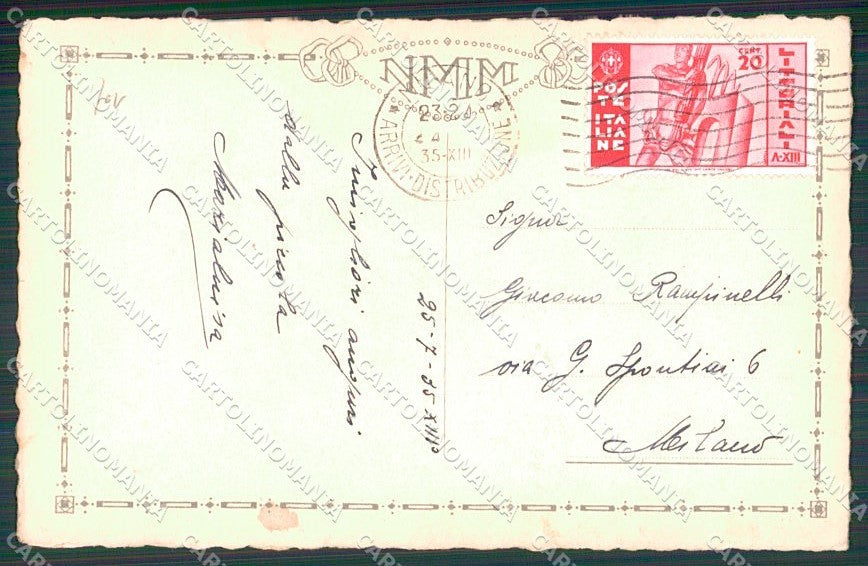 NMM
23-24
35-XIII
ARRIVI-DISTRIBUZIONE
POSTE
ITALIANE
CENT.
20
LITTORIALI
A·XIII
25-7-35 XIIIº
I migliori auguri
dalla piccola
Marialuisa
Signor
Giacomo Rampinelli
via G. Spontini 6
Milano
CARTOLINOMANIA